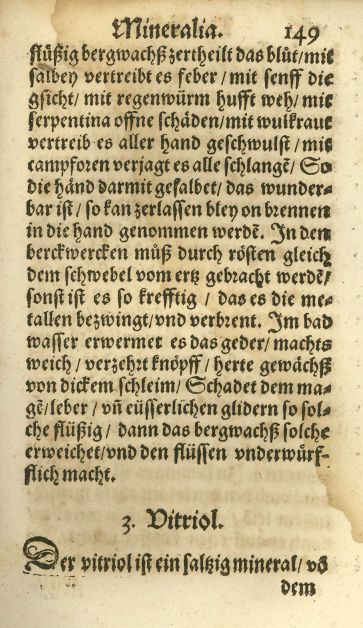 Mineralia. 149
flüßig bergwachß zertheilt das blůt/mit
salbey vertreibt es feber/mit senff die
gsicht/ mit regenwürm hufft weh/mit
serpentina offne schäden/mit wulkraut
vertreib es aller hand geschwulst / mit
campforen verjagt es alle schlangẽ/ So
die händ darmit gesalbet/ das wunder-
bar ist / so kan zerlassen bley on brennen
in die hand genommen werdẽ. In den
berckwercken můß durch rösten gleich
dem schwebel vom ertz gebracht werdẽ/
sonst ist es so krefftig / das es die me-
tallen bezwingt/vnd verbrent. Im bad
wasser erwermet es das geder/ machts
weich / verzehrt knöpff / herte gewächß
von dickem schleim/ Schadet dem ma-
gẽ/leber / vñ eüsserlichen glidern so sol-
che flüßig / dann das bergwachß solche
erweichet/vnd den flüssen vnderwürf-
flich macht.
3. Vitriol.
Der vitriol ist ein saltzig mineral/ võ
dem